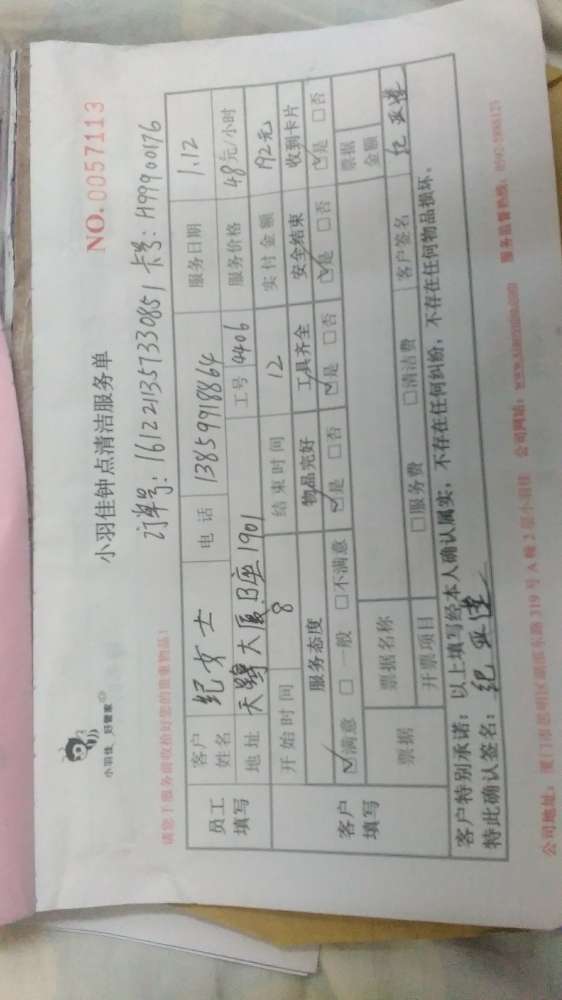 小羽佳 好管家
小羽佳钟点清洁服务单
NO.0057113
请您于服务前收拾好您的贵重物品!
订单号: 1612211357330851 卡号: H99900176
员工填写
客户姓名 纪女士 电话 13859918864 服务日期 1.12
地址 天骅大厦B座1901 工号 4406 服务价格 48元/小时
客户填写
开始时间 8 结束时间 12 实付金额 192元
服务态度 物品完好 工具齐全 安全结束 收到卡片
☑满意 □一般 □不满意 ☑是 □否 ☑是 □否 ☑是 □否 ☑是 □否
票据 票据名称 票据金额
开票项目 □服务费 □清洁费 客户签名 纪亚萍
客户特别承诺: 以上填写经本人确认属实,不存在任何纠纷,不存在任何物品损坏。
特此确认签名: 纪亚萍
公司地址: 厦门市思明区湖滨东路319号A幢2层小羽佳 公司网站: www.xiaoyujia.com 服务监督热线: 0592-5908123